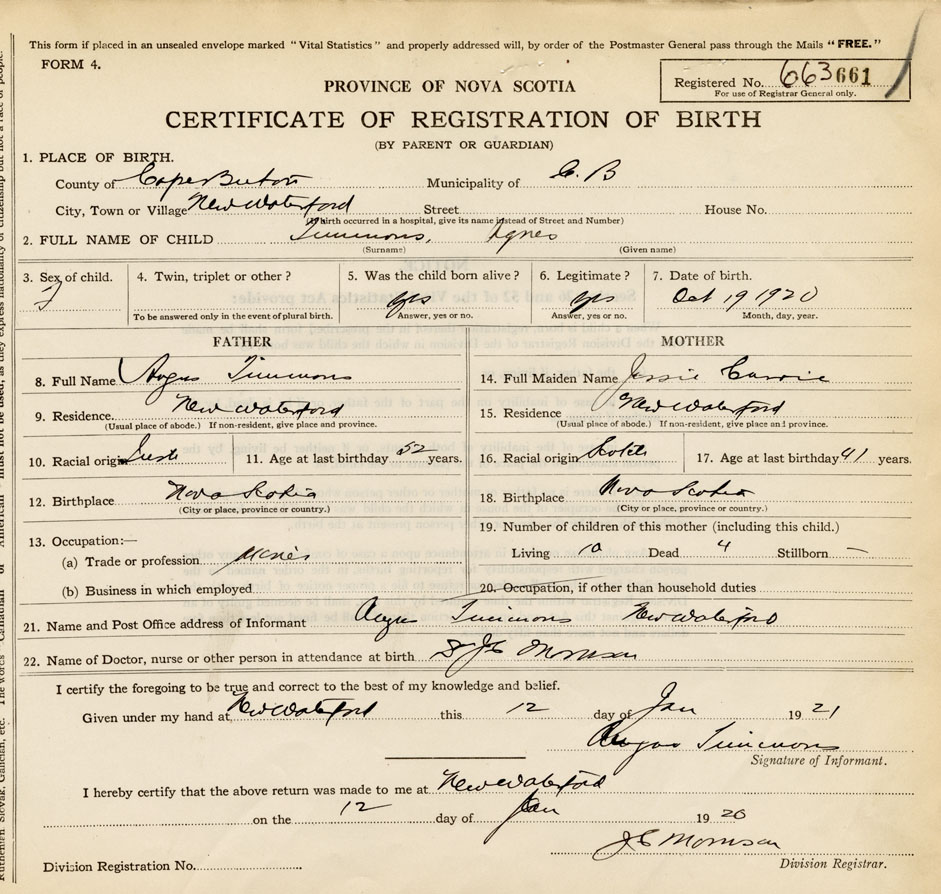 This form if placed in an unsealed envelope marked "Vital Statistics" and properly addressed will, by order of the Postmaster General pass through the Mails "FREE."
FORM 4.
Registered No. 663661
For use of Registrar General only.
PROVINCE OF NOVA SCOTIA
CERTIFICATE OF REGISTRATION OF BIRTH
(BY PARENT OR GUARDIAN)
1. PLACE OF BIRTH.
County of Cape Breton Municipality of C. B
City, Town or Village New Waterford Street House No.
(If birth occurred in a hospital, give its name instead of Street and Number)
2. FULL NAME OF CHILD Timmons, Agnes
(Surname) (Given name)
3. Sex of child. 4. Twin, triplet or other? 5. Was the child born alive? 6. Legitimate? 7. Date of birth.
F yes yes Oct 19 1920
To be answered only in the event of plural birth. Answer, yes or no. Answer, yes or no. Month, day, year.
FATHER MOTHER
8. Full Name Angus Timmons 14. Full Maiden Name Jessie Currie
9. Residence. New Waterford 15. Residence New Waterford
(Usual place of abode.) If non-resident, give place and province. (Usual place of abode.) If non-resident, give place and province.
10. Racial origin Irish 11. Age at last birthday 52 years. 16. Racial origin Scotch 17. Age at last birthday 41 years.
12. Birthplace Nova Scotia 18. Birthplace Nova Scotia
(City or place, province or country.) (City or place, province or country.)
13. Occupation:— 19. Number of children of this mother (including this child.)
(a) Trade or profession Miner Living 10 Dead 4 Stillborn —
(b) Business in which employed 20. Occupation, if other than household duties
21. Name and Post Office address of Informant Angus Timmons New Waterford
22. Name of Doctor, nurse or other person in attendance at birth Morrison
I certify the foregoing to be true and correct to the best of my knowledge and belief.
Given under my hand at New Waterford this 12 day of Jan 1921
Angus Timmons
Signature of Informant.
I hereby certify that the above return was made to me at New Waterford
on the 12 day of Jan 1920
J S Morrison
Division Registration No. Division Registrar.